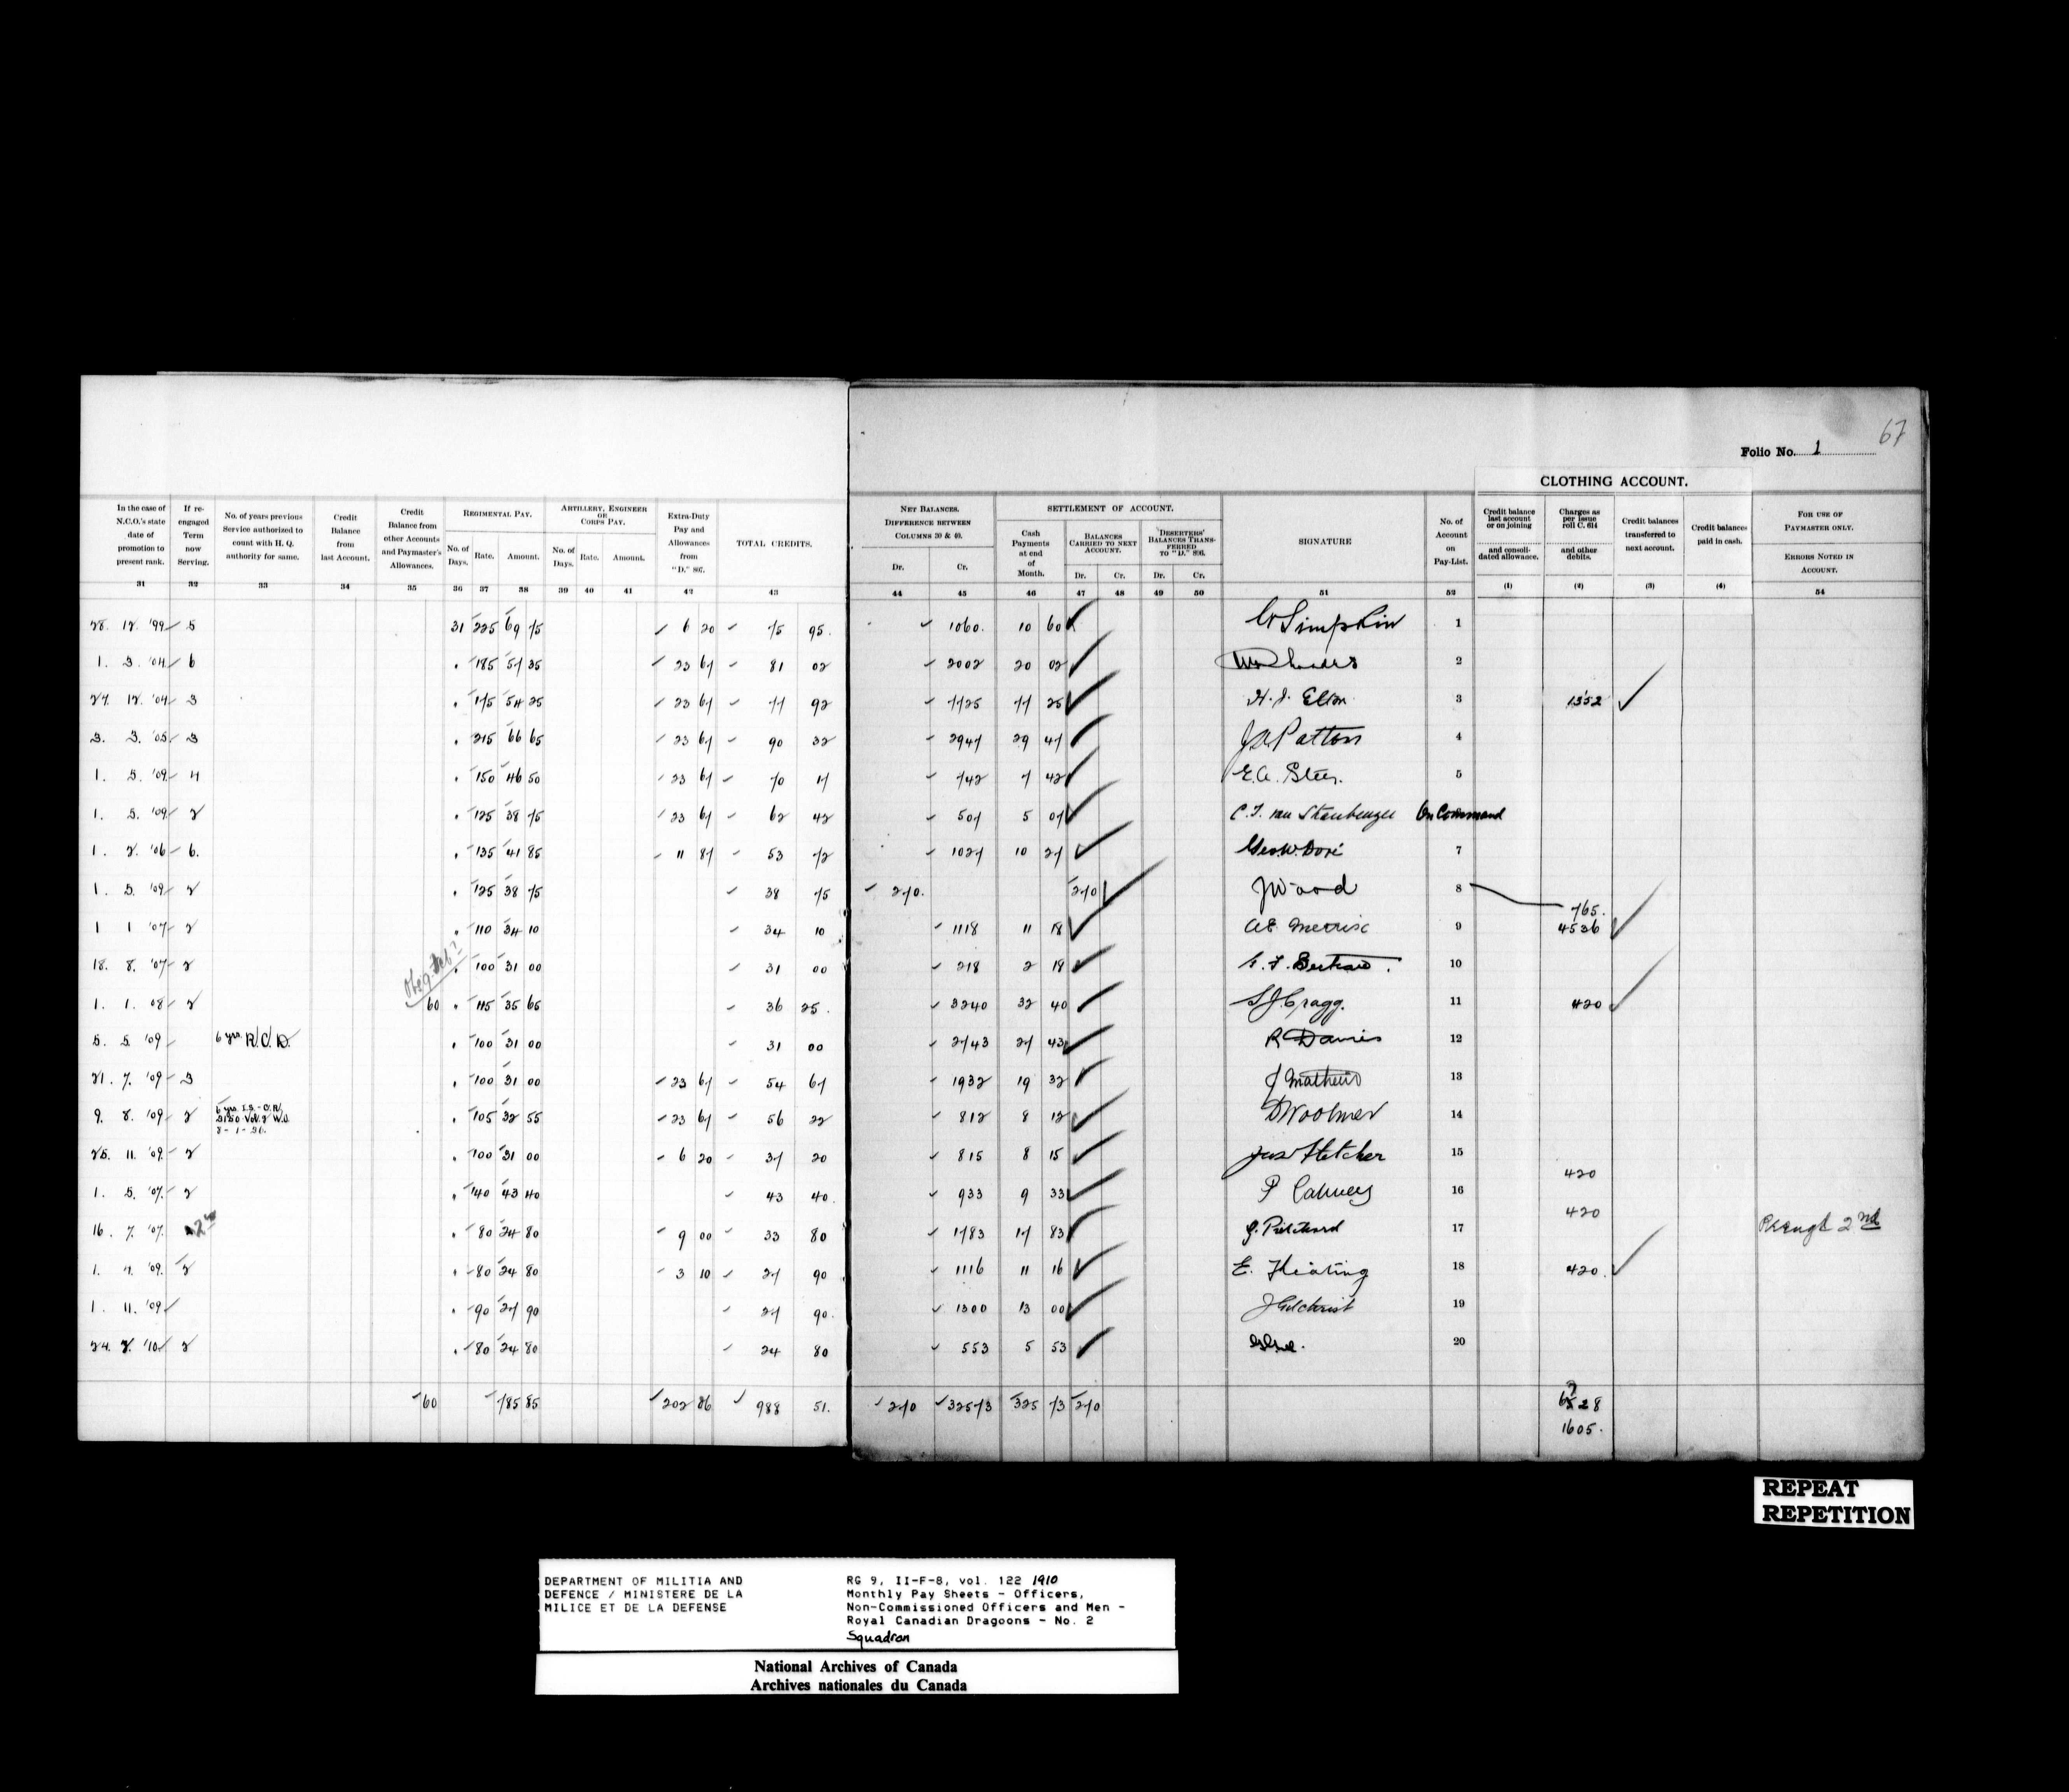 67
Folio No. 1
CLOTHING ACCOUNT.
In the case of N.C.O.'s state date of promotion to present rank.
If re-engaged Term now Serving.
No. of years previous Service authorized to count with H. Q. authority for same.
Credit Balance from last Account.
Credit Balance from other Accounts and Paymaster's Allowances.
REGIMENTAL PAY.
No. of Days. Rate. Amount.
ARTILLERY, ENGINEER OR CORPS PAY.
No. of Days. Rate. Amount.
Extra-Duty Pay and Allowances from "D." 807.
TOTAL CREDITS.
NET BALANCES. DIFFERENCE BETWEEN COLUMNS 30 & 40.
Dr. Cr.
SETTLEMENT OF ACCOUNT.
Cash Payments at end of Month.
BALANCES CARRIED TO NEXT ACCOUNT.
Dr. Cr.
DESERTERS' BALANCES TRANSFERRED TO "D." 896.
Dr. Cr.
SIGNATURE
No. of Account on Pay-List.
Credit balance last account or on joining and consolidated allowance.
Charges as per issue roll C. 614 and other debits.
Credit balances transferred to next account.
Credit balances paid in cash.
FOR USE OF PAYMASTER ONLY.
ERRORS NOTED IN ACCOUNT.
31 32 33 34 35 36 37 38 39 40 41 42 43 44 45 46 47 48 49 50 51 52 (1) (2) (3) (4) 54
28. 12. '99 5 31 225 69 75 6 20 75 95. 1060. 10 60 W Simpkin 1
1. 3. '04 6 " 185 57 35 23 67 81 02 2002 20 02 2
27. 12. '04 3 " 175 54 25 23 67 77 92 7725 77 25 H. J. Elton 3 1352
3. 3. '05 3 " 215 66 65 23 67 90 32 2947 29 47 J A Patton 4
1. 5. '09 4 " 150 46 50 23 67 70 17 742 7 42 E. A. Steer. 5
1. 5. '09 2 " 125 38 75 23 67 62 42 507 5 07 C. T. van Straubenzee On Command
1. 2. '06 6. " 135 41 85 11 87 53 72 1027 10 27 Geo. W. Doré 7
1. 5. '09 2 " 125 38 75 38 75 270. 270 J Wood 8 765.
1 1 '07 2 " 110 34 10 34 10 1118 11 18 A E 9 4536
18. 8. '07 2 " 100 31 00 31 00 218 2 18 10
1. 1. 08 2 60 " 115 35 65 36 25. 3240 32 40 S J Cragg. 11 420
5. 5. '09 6 yrs. R.C.D. " 100 31 00 31 00 2743 27 43 R Davies 12
21. 7. '09 3 " 100 31 00 23 67 54 67 1932 19 32 J Mathews 13
9. 8. '09 2 " 105 32 55 23 67 56 22 812 8 12 D Woolmer 14
25. 11. '09 2 " 100 31 00 6 20 37 20 815 8 15 Jas Fletcher 15
1. 5. '07 2 " 140 43 40 43 40. 933 9 33 P 16 420
16. 7. '07. 2 " 80 24 80 9 00 33 80 1783 17 83 G. Pritchard 17 420 Reengd 2nd
1. 7. '09. 2 " 80 24 80 3 10 27 90 1116 11 16 E. Keating 18 420.
1. 11. '09 " 90 27 90 27 90. 1300 13 00 J Gilchrist 19
24. 2. '10 2 " 80 24 80 24 80 553 5 53 20
60 785 85 202 06 988 51. 270 32573 325 73 270 6528
1605.
REPEAT
REPETITION
DEPARTMENT OF MILITIA AND
DEFENCE / MINISTERE DE LA
MILICE ET DE LA DEFENSE
RG 9, II-F-8, vol. 122 1910
Monthly Pay Sheets - Officers,
Non-Commissioned Officers and Men -
Royal Canadian Dragoons - No. 2
Squadron
National Archives of Canada
Archives nationales du Canada